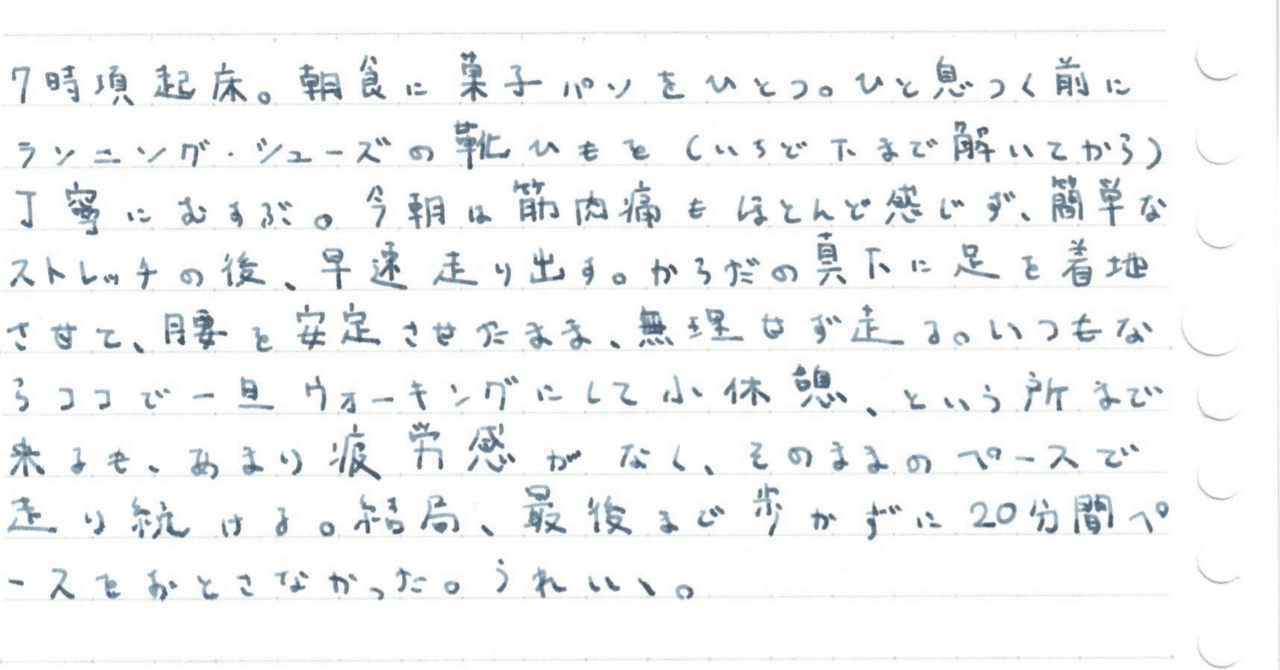 7時頃起床。朝食に菓子パンをひとつ。ひと息つく前に
ランニング・シューズの靴ひもを(いちど下まで解いてから)
丁寧にむすぶ。今朝は筋肉痛もほとんど感じず、簡単な
ストレッチの後、早速走り出す。からだの真下に足を着地
させて、腰を安定させたまま、無理せず走る。いつもな
らココで一旦ウォーキングにして小休憩、という所まで
来るも、あまり疲労感がなく、そのままのペースで
走り続ける。結局、最後まで歩かずに20分間ペ
ースをおとさなかった。うれしい。